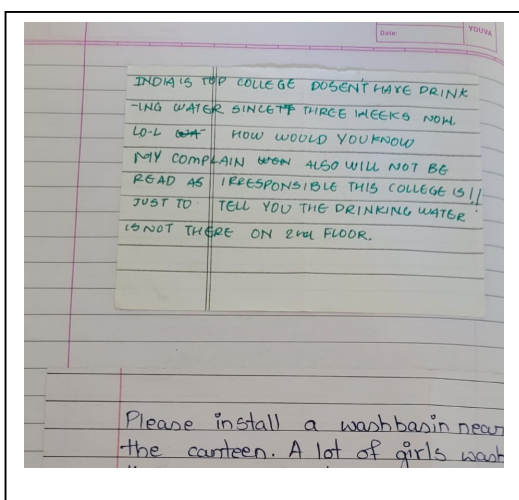 Date:
YOUVA
INDIA'S TOP COLLEGE DOSEN'T HAVE DRINK
-ING WATER SINCE THREE WEEKS NOW
LO-L HOW WOULD YOU KNOW
MY COMPLAIN ALSO WILL NOT BE
READ AS IRRESPONSIBLE THIS COLLEGE IS!!
JUST TO TELL YOU THE DRINKING WATER
IS NOT THERE ON 2nd FLOOR.
Please install a washbasin near
the canteen. A lot of girls wash